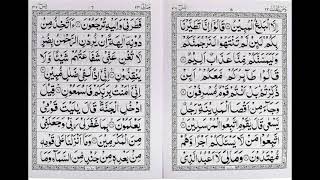 إِلَّا الْبَلٰغُ الْمُبِيْنُ ۝ قَالُوْۤا اِنَّا تَطَيَّرْنَا
بِكُمْ لَئِنْ لَّمْ تَنْتَهُوْا لَنَرْجُمَنَّكُمْ
وَلَيَمَسَّنَّكُمْ مِّنَّا عَذَابٌ اَلِيْمٌ ۝
قَالُوْا طَآئِرُكُمْ مَّعَكُمْ اَئِنْ
ذُكِّرْتُمْ بَلْ اَنْتُمْ قَوْمٌ مُّسْرِفُوْنَ ۝
وَجَآءَ مِنْ اَقْصَا الْمَدِيْنَةِ رَجُلٌ
يَّسْعٰى قَالَ يٰقَوْمِ اتَّبِعُوا الْمُرْسَلِيْنَ ۝
اتَّبِعُوْا مَنْ لَّا يَسْئَلُكُمْ اَجْرًا وَّهُمْ
مُّهْتَدُوْنَ ۝ وَمَا لِيَ لَاۤ اَعْبُدُ الَّذِيْ
فَطَرَنِيْ وَاِلَيْهِ تُرْجَعُوْنَ ۝ ءَاَتَّخِذُ مِنْ
دُوْنِهٖۤ اٰلِهَةً اِنْ يُّرِدْنِ الرَّحْمٰنُ بِضُرٍّ
لَّا تُغْنِ عَنِّيْ شَفَاعَتُهُمْ شَيْئًا وَّلَا
يُنْقِذُوْنِ ۝ اِنِّيْۤ اِذًا لَّفِيْ ضَلٰلٍ مُّبِيْنٍ ۝
اِنِّيْۤ اٰمَنْتُ بِرَبِّكُمْ فَاسْمَعُوْنِ ۝ قِيْلَ
ادْخُلِ الْجَنَّةَ قَالَ يٰلَيْتَ قَوْمِيْ
يَعْلَمُوْنَ ۝ بِمَا غَفَرَ لِيْ رَبِّيْ وَجَعَلَنِيْ
مِنَ الْمُكْرَمِيْنَ ۝ وَمَاۤ اَنْزَلْنَا عَلٰى قَوْمِهٖ
مِنْۢ بَعْدِهٖ مِنْ جُنْدٍ مِّنَ السَّمَآءِ وَمَا